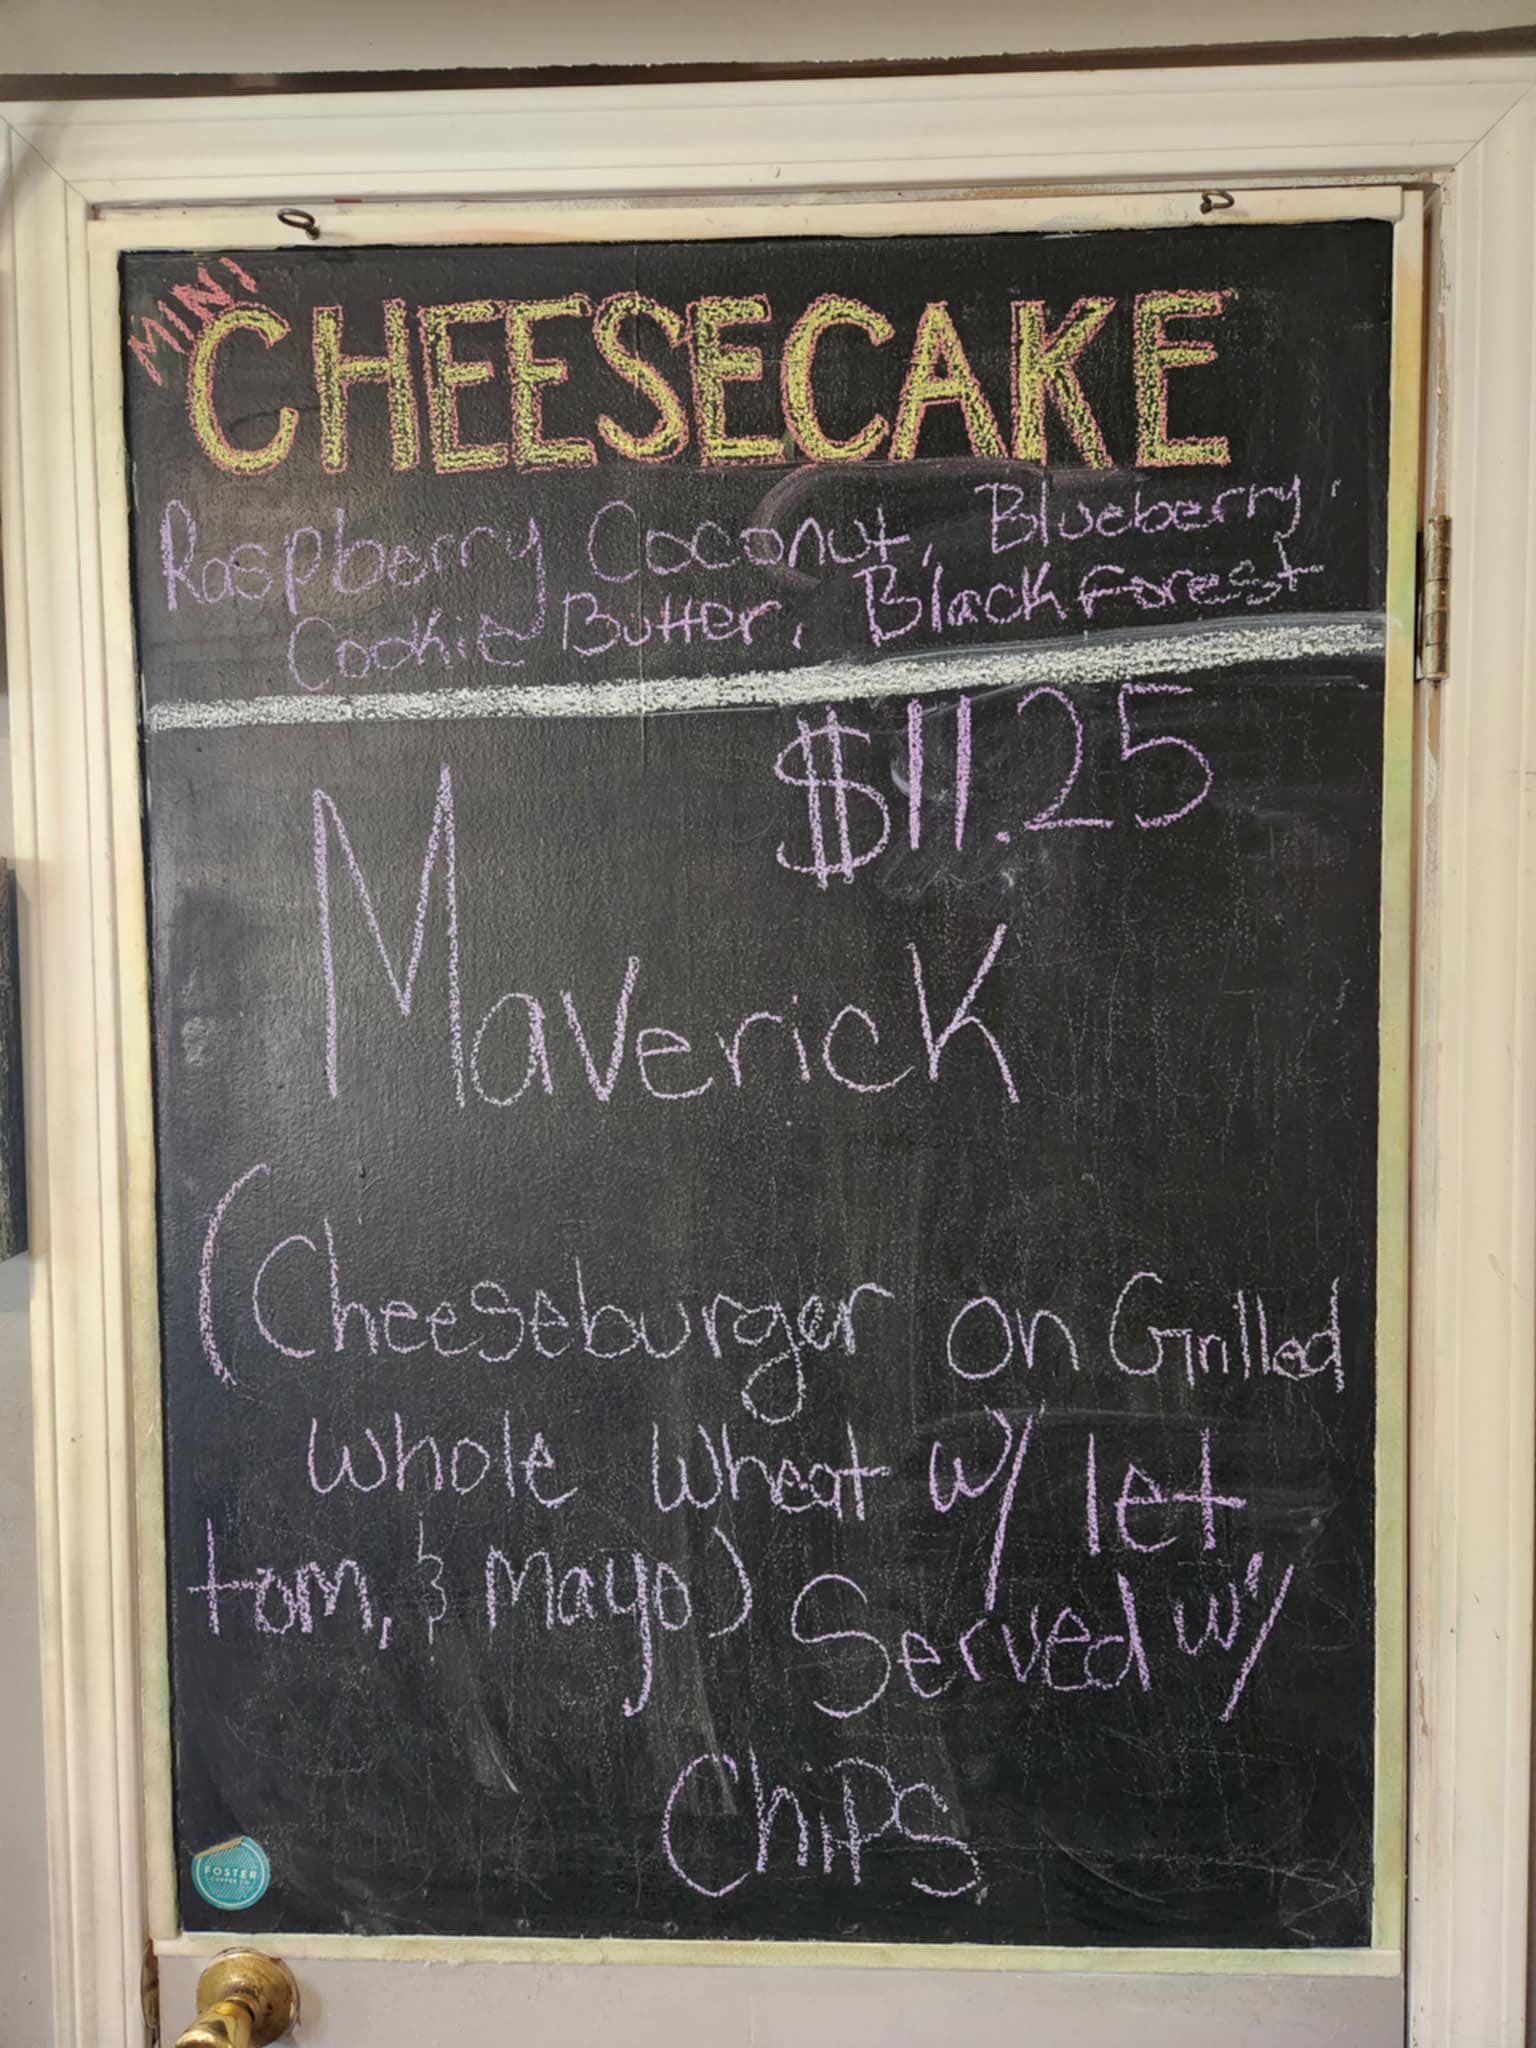 MINI
CHEESECAKE
Raspberry Coconut, Blueberry,
Cookie Butter, Black Forest
$11.25
Maverick
(Cheeseburger on Grilled
whole wheat w/ let
tom, & Mayo) Served w/
Chips
FOSTER
COFFEE CO